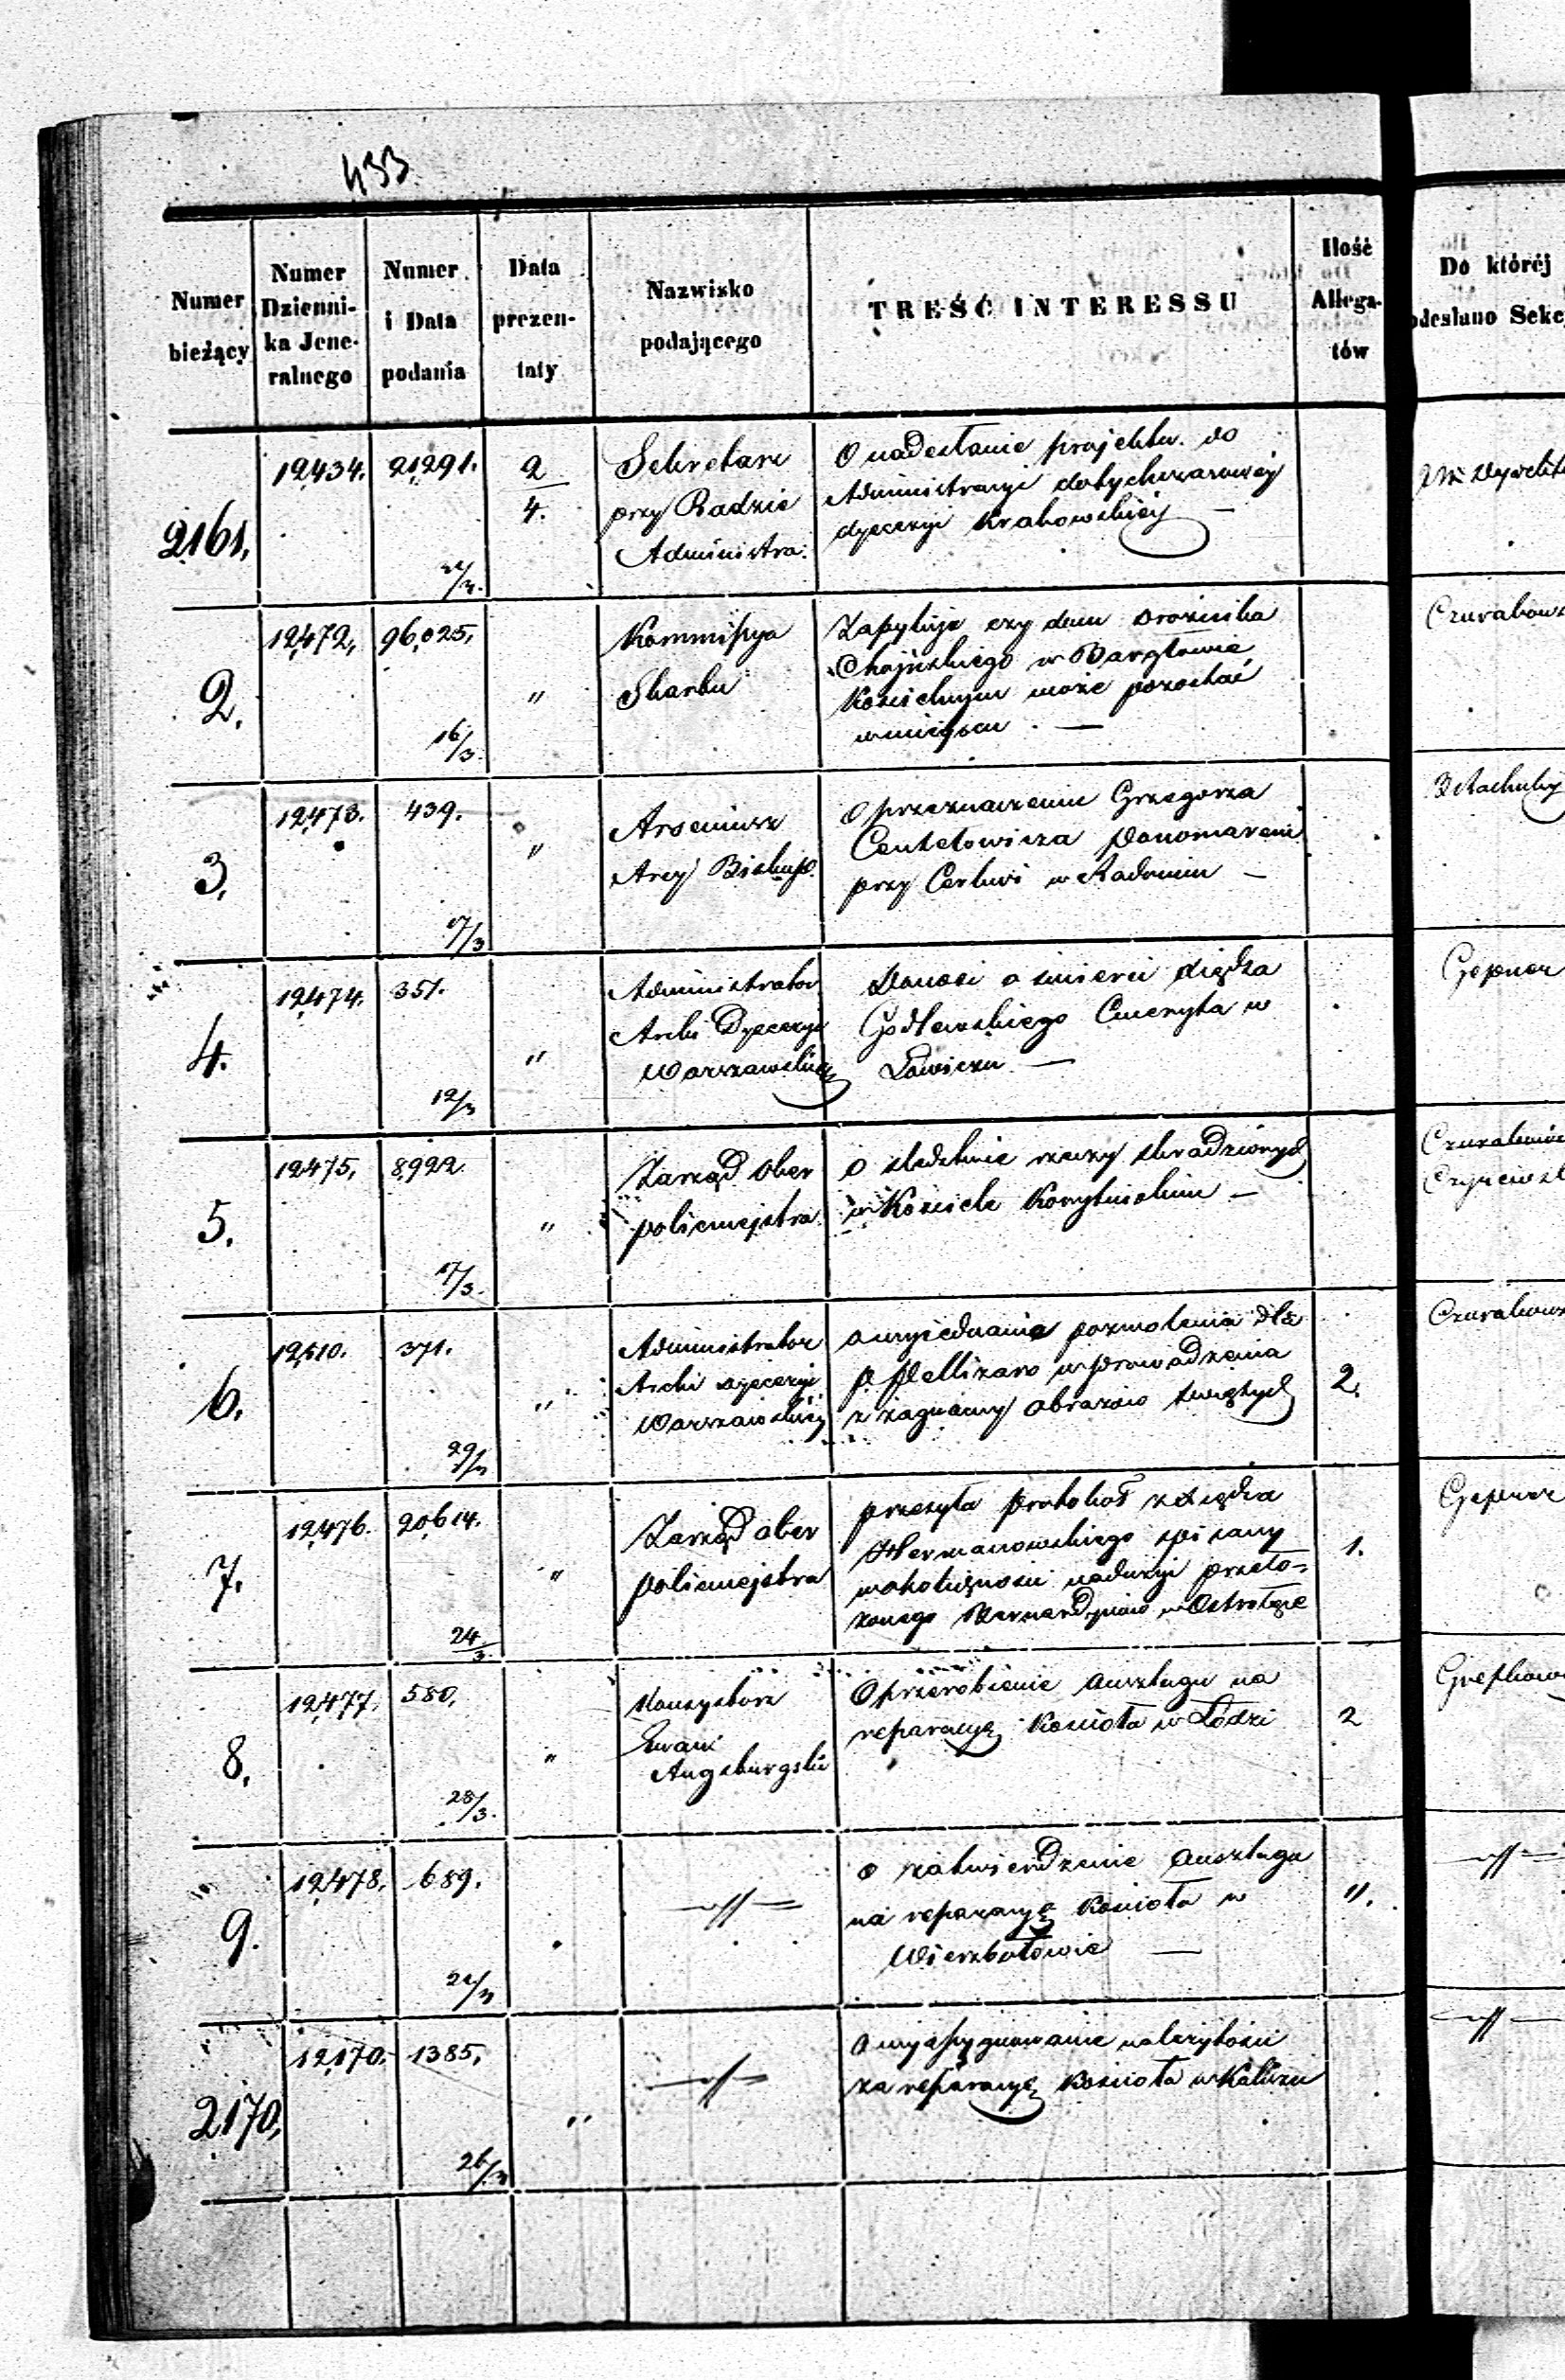 433.
Numer bieżący
Numer Dzienni-ka Jene-ralnego
Numer i Data podania
Data prezen-taty
Nazwisko podającego
TREŚĆ INTERESSU
Ilość Allega-tów
Do któréj odesłano Sekc
2161.
12,434.
21,291.
2/4.
Sekretarz
przy Radzie
Administra.
O nadesłanie projektu do
Administracyi dotychczasowej
dyecezyi Krakowskiéj —
2.
12,472.
96,025.
16/3.
"
Kommissya
Skarbu
Zapytuje czy dom drożnika
w Bargłowie
Kościelnym może pozostać
w miejscu. —
Czurakows
3.
12,473.
439.
17/3
"
Arseniusz
Arcy Biskup.
O przeznaczeniu Grzegorza
Ponomarem
przy Cerkwi w Radomiu —
4.
12,474.
351.
12/3
"
Administrator
Archi Dyecezyi
Warszawskiéj
Donosi o śmierci Księdza
Godlewskiego Emeryta w
Łowiczu —
Gepner
5.
12,475.
8,922.
17/3.
"
Zarząd Ober
policmejstra
O śledztwie rzeczy skradzionych
w Kościele Korytnickim —
6.
12,510.
371.
29/3
"
Administrator
Archi dyecezyi
Warszawskiéj
O wyjednanie pozwolenia dla
P. Pellizaro wprowadzenia
z zagranicy obrazów świętych
2.
Czurakows
7.
12,476.
20,614.
24/3.
"
Zarząd ober
policmejstra
przesyła protokół z Księdza
Hermanowskiego spisany
w okoliczności nadużyć przeło-
żonego Bernardynów w Ostrołęce
1.
Gepner
8.
12,477.
580.
28/3.
"
Konsystorz
Ewani
Augsburgski
O przerobienie Anszlagu na
reparacyę Kościoła w Łodzi
2
9.
12,478.
689.
— " —
O zatwierdzenie Anszlagu
na reparacyę Kościoła w
Wierzbołowie —
".
— " —
2170.
12,170.
1385.
26/3
"
— " —
O wyassygnowanie należytości
za reparacyę Kościoła w Kaliszu
— " —